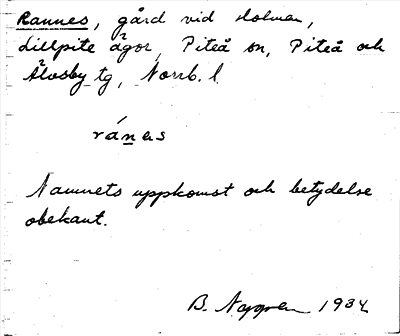 Rannes, gård vid Holmen,
Lillpite ägor, Piteå sn, Piteå och
Älvsby tg, Norrb. l.
ránas
Namnets uppkomst och betydelse
obekant.
B. Nygren 1934